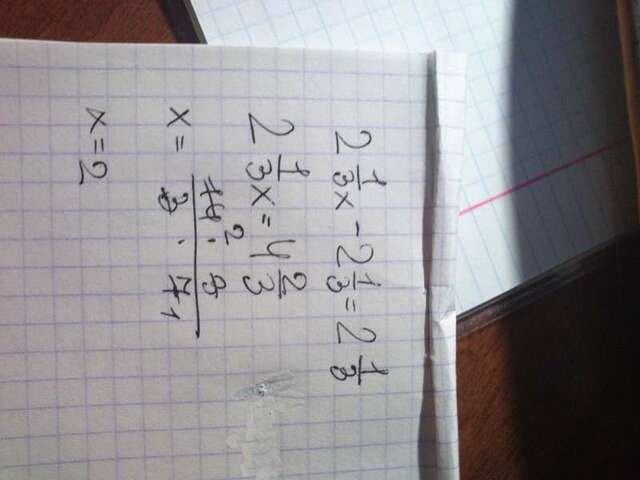 2 1/3 x - 2 1/3 = 2 1/3
2 1/3 x = 4 2/3
x = (14 · 3)/(3 · 7) 2 1
x = 2